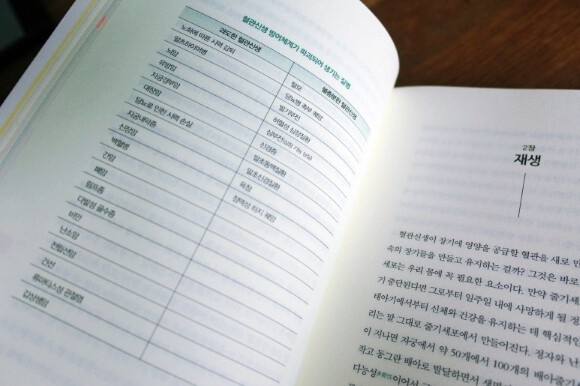 혈관신생 방어체계가 파괴되어 생기는 질병
과도한 혈관신생
불충분한 혈관신생
노화에 따른 시력 감퇴
알츠하이머병
뇌암
유방암
자궁경부암
대장암
당뇨로 인한 시력 손실
자궁내막증
신장암
백혈병
간암
폐암
림프종
다발성 골수종
비만
난소암
전립선암
건선
류마티스성 관절염
갑상샘암
탈모
당뇨병 족부 궤양
발기부전
허혈성 심장질환
신경증
말초동맥질환
말초신경질환
욕창
정맥성 하지 궤양
2장
재생
혈관신생이 장기에 영양을 공급할 혈관을 새로 만
속의 장기들을 만들고 유지하는 걸까? 그것은 바로
세포는 우리 몸에 꼭 필요한 요소이다. 만약 줄기
가 중단된다면 그로부터 일주일 내에 사망하게 될 정
태아기에서부터 신체와 건강을 유지하는 데 핵심적인
리는 말 그대로 줄기세포에서 만들어진다. 정자와 난
이 지나면 자궁에서 약 50개에서 100개의 배아줄기
작고 동그란 배아로 발달하면서
다능성